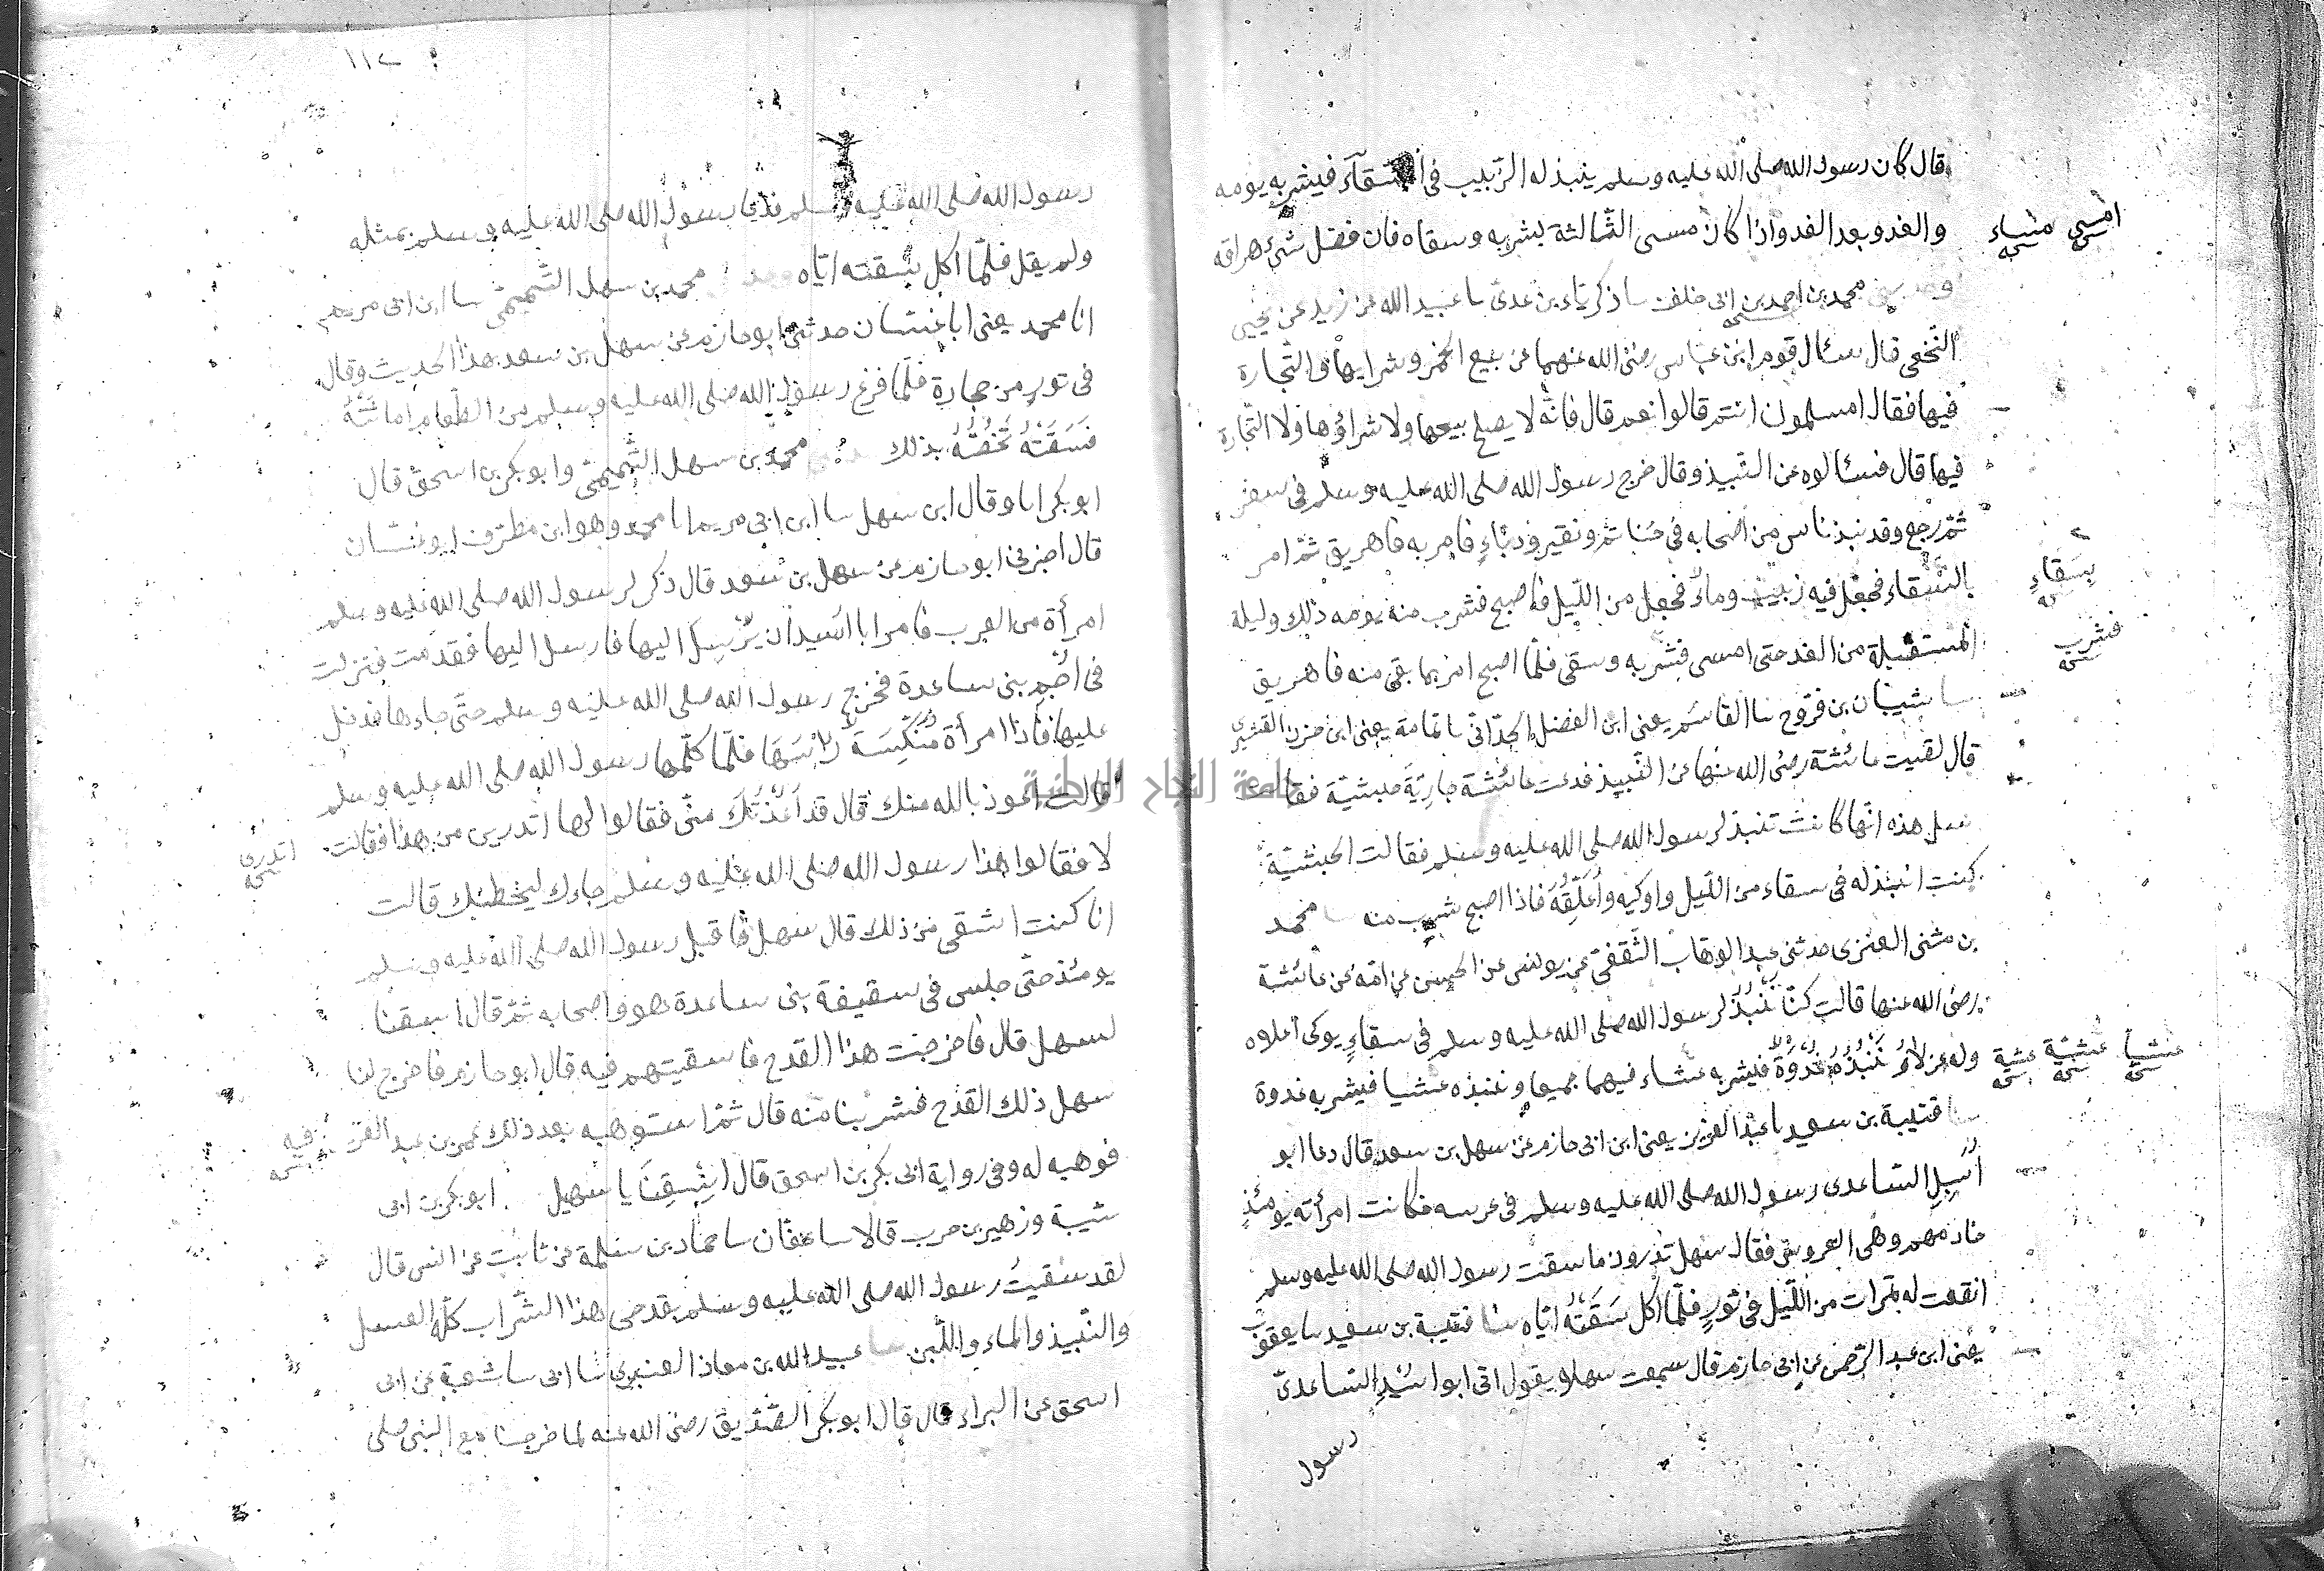 قال كان رسول الله صلى الله عليه وسلم ينبذ له الزبيب في السقاء فيشربه يومه
والغد وبعد الغد واذا كان مسى الثالثة يشربه وسقاه فان فضل شئ هراقه
امسى مساء
محمد بن احمد بن ابى خلف سا زكرياء بن عدىّ سا عبيد الله عن زيد عن يحيى
النخعى قال سئال قوم ابن عباس رضى الله عنهما عن بيع الخمر وشرايها والتجارة
فيها فقال امسلمون انتم قالوا نعم قال فانه لا يصلح بيعها ولا شراؤها ولا التجارة
فيها قال فسئالوه عن النبيذ وقال خرج رسول الله صلى الله عليه وسلم فى سفر
ثم رجع وقد نبذ ناس من اصحابه فى حناتم ونقير ودبّاءٍ فامر به فاهريق ثم امر
بالسقاء فجعل فيه زبيب وماء فجعل من الليل فاصبح فشرب منه يومه ذلك وليلة
بسقاءٍ
المستقبلة من الغد حتى امسى فشربه وسقى فلما اصبح امر بما بقى منه فاهريق
فشرب
سا شيبان بن فروخ سا القاسم يعنى ابن الفضل الحدّانى سا ثمامة يعنى ابن حزن القشيرى
قال لقيت عائشة رضى الله عنها عن النبيذ فدعت عائشة جارية حبشية فقالت
سل هذه انها كانت تنبذ لرسول الله صلى الله عليه وسلم فقالت الحبشية
كنت انبذ له فى سقاء من الليل واوكيه وأعلّقه فاذا اصبح شرب منه سا محمد
بن مثنى العنزى حدثنى عبد الوهاب الثقفى عن يونس عن الحسن عن امه عن عائشة
رضى الله عنها قالت كنّا نَنْبُذُ لرسول الله صلى الله عليه وسلم فى سقاءٍ يوكى اعلاه
وله عزلاء نَنْبُذُهُ غُدْوَةً فيشربه عشاء فيهما جميعا وننبذه عشيا فيشربه غدوة
عشية عشيّة عشياً
سا قتيبة بن سعيد سا عبد العزيز يعنى ابن ابى حازم عن سهل بن سعد قال دعا ابو
أُسَيدٍ الساعدى رسول الله صلى الله عليه وسلم فى عرسه فكانت امرأته يومئذٍ
خادمهم وهى العروس فقال سهل تدرون ما سقت رسول الله صلى الله عليه وسلم
انقعت له تمرات من الليل فى تورٍ فلمّا اكل سَقَتْهُ اياه سا قتيبة بن سعيد سا يعقوب
يعنى ابن عبد الرحمن عن ابى حازم قال سمعت سهلا يقول اتى ابو اسيدٍ الساعدىّ
رسول
١١٢
رسول الله صلى الله عليه وسلم فدعا رسول الله صلى الله عليه وسلم بمثله
ولم يقل فلمّا اكل سقته اياه محمد بن سهل التميمى سا ابن ابى مريم
انا محمد يعنى ابا غسان حدثنى ابو حازم عن سهل بن سعد بهذا الحديث وقال
فى تورٍ من حجارة فلمّا فرغ رسول الله صلى الله عليه وسلم من الطعام اماثته
فسقته تخصّه بذلك محمد بن سهل التميمىّ وابو بكر بن اسحق قال
ابو بكر انا وقال ابن سهل سا ابن ابى مريم انا محمد وهو ابن مطرّف ابو غسّان
قال اخبرنى ابو حازم عن سهل بن سعد قال ذكر لرسول الله صلى الله عليه وسلم
امرأة من العرب فامر ابا اسيد ان يُرْسِلَ اليها فارسل اليها فقدمت فنزلت
فى اجم بنى ساعدة فخرج رسول الله صلى الله عليه وسلم حتى جاءها فدخل
عليها فاذا امرأة مُنَكِّسَةٌ رأسها فلمّا كلّمها رسول الله صلى الله عليه وسلم
قالت اعوذ بالله منك قال قد أعذتُكِ منّى فقالوا لها اتدرين من هذا فقالت
اتدرى
لا فقالوا هذا رسول الله صلى الله عليه وسلم جاءك ليخطبك قالت
انا كنت اشقى من ذلك قال سهل فاقبل رسول الله صلى الله عليه وسلم
يومئذ حتّى جلس فى سقيفة بنى ساعدة هو واصحابه ثم قال اسقنا
لسهل قال فاخرجت هذا القدح فاسقيتهم فيه قال ابو حازم فاخرج لنا
سهل ذلك القدح فشربنا منه قال ثم استوهبه بعد ذلك عمر بن عبد العزيز
فيه
فوهبه له وفى رواية ابى بكر بن اسحق قال اسقنا يا سهل ابو بكر بن ابى
شيبة وزهير بن حرب قالا سا عفّان سا حماد بن سلمة عن ثابت عن انس قال
لقد سقيت رسول الله صلى الله عليه وسلم بقدحى هذا الشراب كلّه العسل
والنّبيذ والماء واللبن سا عبيد الله بن معاذ العنبرى سا ابى سا شعبة عن ابى
اسحق عن البراء قال قال ابو بكر الصّدّيق رضى الله عنه لما خرجنا مع النبى صلى
جامعة النجاح الوطنية